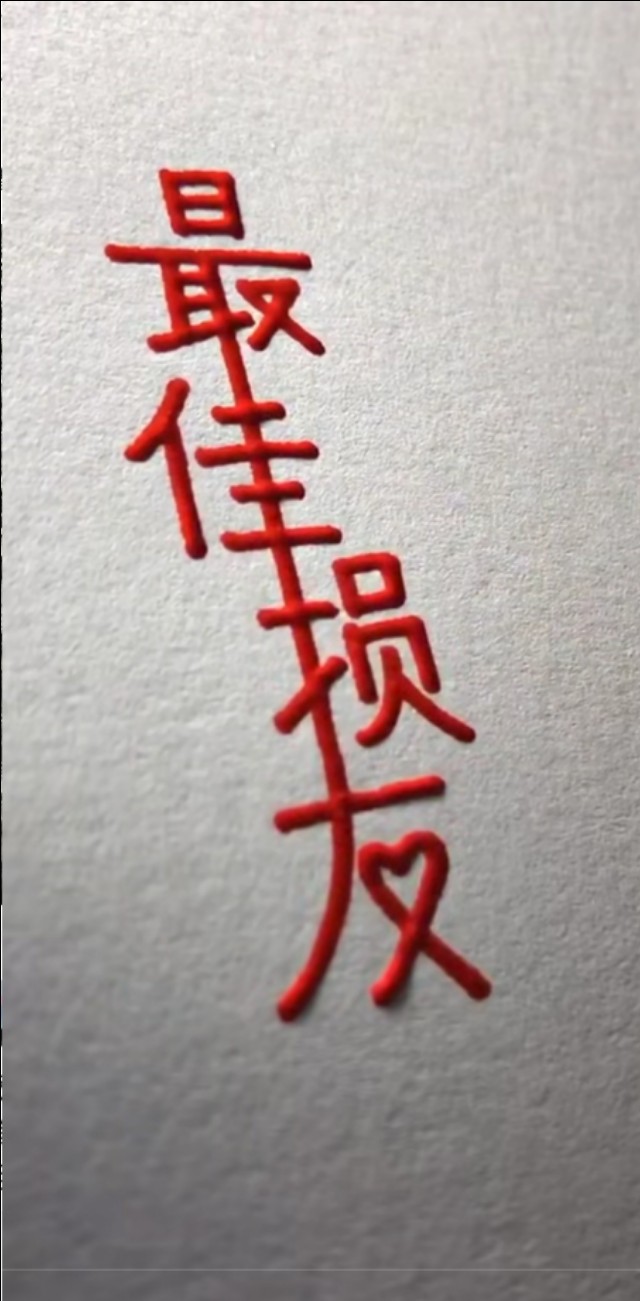 最佳损友